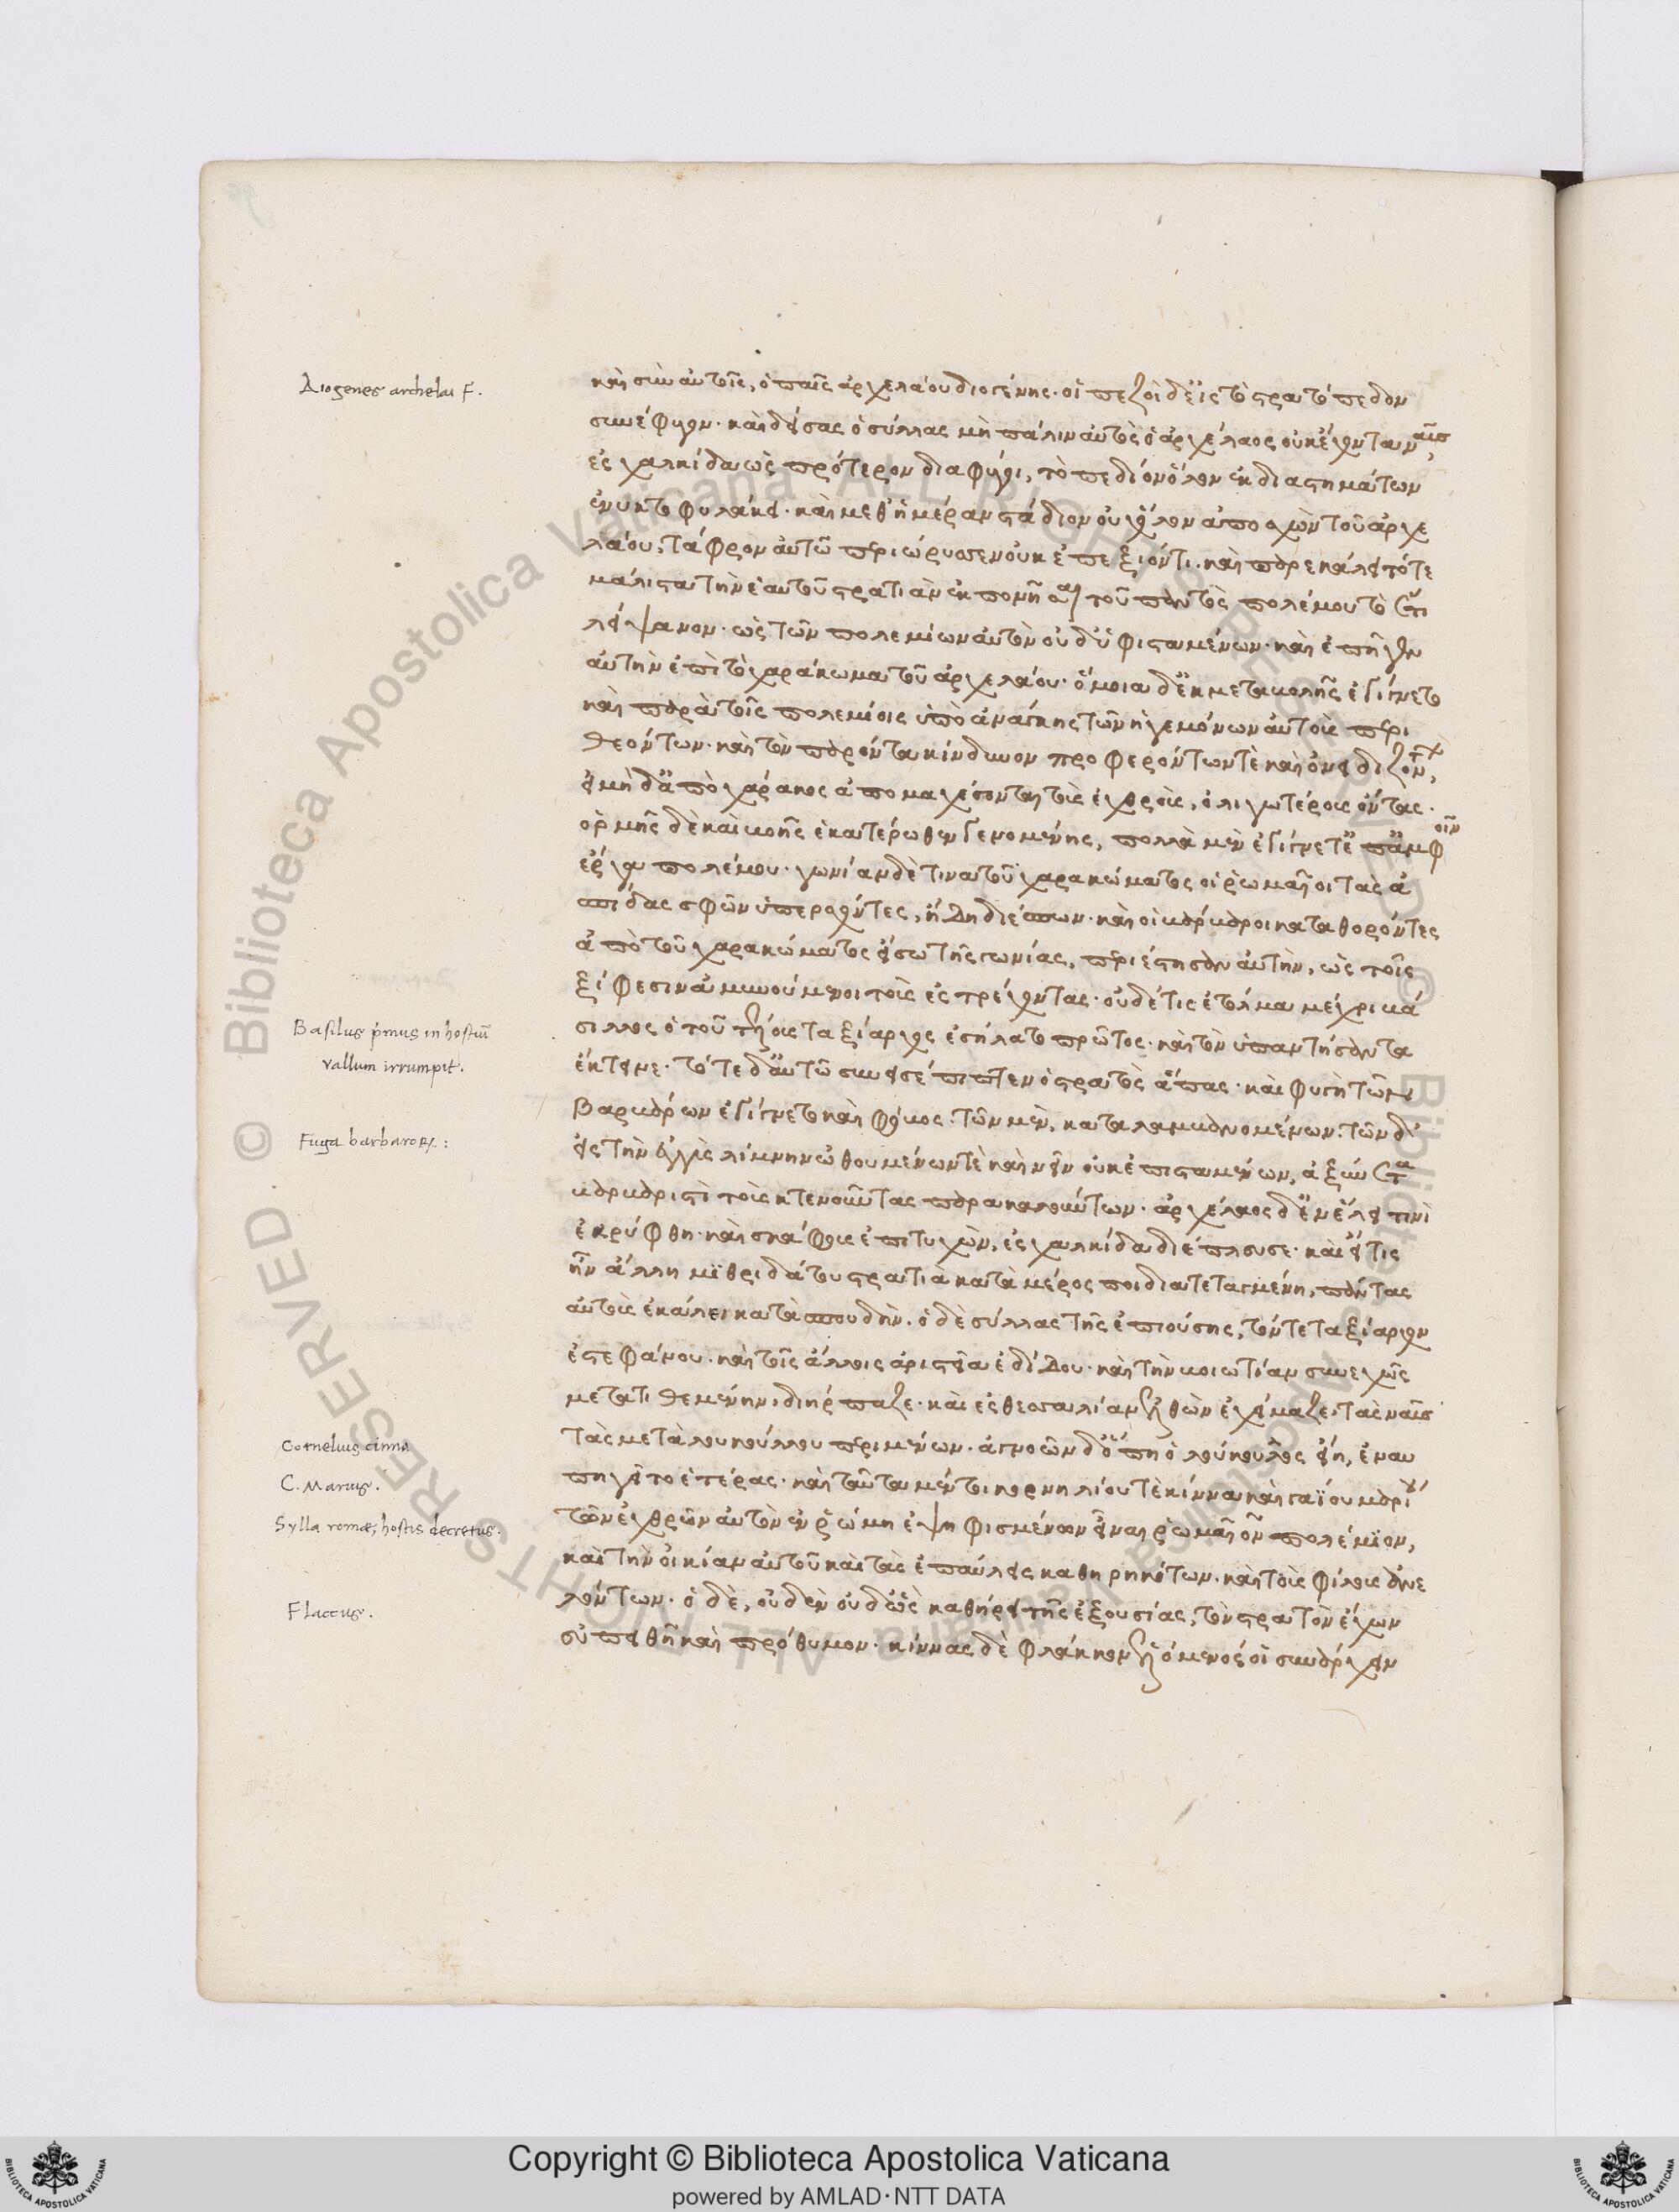 Diogenes archelai F.
καὶ σὺν αὐτοῖς, ὁ παῖς ἀρχελάου διογένης. οἱ πεζοὶ δ' ἐς τὸ στρατόπεδον
συνέφυγον. καὶ δείσας ὁ σύλλας μὴ πάλιν αὐτὸς ὁ ἀρχέλαος οὐκ ἔχοντα ναῦς
ἐς χαλκίδα ὡς πρότερον διαφύγῃ, τὸ πεδίον ὅλον ἐκ διαστημάτων
ἐνυκτοφυλάκει. καὶ μεθ' ἡμέραν στάδιον οὐχ ὅλον ἀποσχὼν τοῦ ἀρχε
λάου, τάφρον αὐτῶ περιώρυσσεν οὐκ ἐπεξιόντι. καὶ παρεκάλει τότε
μάλιστα τὴν ἑαυτοῦ στρατιὰν ἐκπονῆσαι τοῦ παντὸς πολέμου τὸ ἔτι
λείψανον. ὡς τῶν πολεμίων αὐτὸν οὐδ' ὑφισταμένων. καὶ ἐπῆγεν
αὐτὴν ἐπὶ τὸ χαράκωμα τοῦ ἀρχελάου. ὅμοια δ' ἐκ μεταβολῆς ἐγίγνετο
καὶ παρὰ τοῖς πολεμίοις ὑπὸ ἀνάγκης τῶν ἡγεμόνων αὐτοῖς περι
θεόντων. καὶ τὸν παρόντα κίνδυνον προφερόντων τὲ καὶ ὀνειδιζόντων,
εἰ μὴ δ' ἀπὸ χάρακος ἀπομαχέσονται τοὺς ἐχθροὺς, ὀλιγωτέρους ὄντας.
ὁρμῆς δὲ καὶ βοῆς ἑκατέρωθεν γενομένης, πολλὰ μὲν ἐγίγνετο ἐπ' ἀμφοῖν
ἔργα πολέμου. γωνίαν δὲ τινα τοῦ χαρακώματος οἱ ῥωμαῖοι τὰς ἀ
σπίδας σφῶν ὑπερσχόντες, ἤδη διέσπων. καὶ οἱ βάρβαροι καταθορόντες
ἀπὸ τοῦ χαρακώματος εἴσω τῆς γωνίας, περιέστησαν αὐτὴν, ὡς τοῖς
ξίφεσιν ἀμυνούμενοι τοὺς ἐστρέχοντας. οὐδέ τις ἐτόλμα μέχρι βά
Basilus primus in hostium
σιλλος ὁ τοῦ τέλους ταξίαρχος ἐσήλατο πρῶτος. καὶ τὸν ὑπαντήσαντα
vallum irrumpit.
ἔκτεινε. τότε δ' αὐτῶ συνεισέπιπτεν ὁ στρατὸς ἅπας. καὶ φυγὴ τῶν
βαρβάρων ἐγίγνετο καὶ φόνος. τῶν μὲν, καταλαμβανομένων. τῶν δὲ
Fuga barbarorum:
εἰς τὴν ἐγγὺς λίμνην ὠθουμένων τὲ καὶ νεῖν οὐκ ἐπισταμένων, ἀξύνετα
βαρβαριστὶ τοὺς κτενοῦντας παρακαλούντων. ἀρχέλαος δ' ἐν ἕλει τινὶ
ἐκρύφθη. καὶ σκάφους ἐπιτυχὼν, ἐς χαλκίδα διέπλευσε. καὶ εἴ τις
ἦν ἄλλη μιθριδάτου στρατιὰ κατὰ μέρος ποι διατεταγμένη, πάντας
αὐτοὺς ἐκάλει κατὰ σπουδὴν. ὁ δὲ σύλλας τῆς ἐπιούσης, τόν τε ταξίαρχον
ἐστεφάνου. καὶ τοῖς ἄλλοις ἀριστεῖα ἐδίδου. καὶ τὴν βοιωτίαν συνεχῶς
μετατιθεμένην, διήρπαζε. καὶ ἐς θεσσαλίαν ἐλθὼν ἐχείμαζε, τὰς ναῦς
Cornelius cinna
τὰς μετὰ λουκούλλου περιμένων. ἀγνοῶν δ' ὅπη ὁ λούκουλλος εἴη, ἐναυ
C. Marius.
πηγεῖτο ἑτέρας. καὶ ταῦτα μέντοι κορνηλίου τὲ κίννα καὶ γαΐου μαρίου
Sylla romae, hostis decretus.
τῶν ἐχθρῶν αὐτὸν ἐν ῥώμη ἐψηφισμένων εἶναι ῥωμαίων πολέμιον,
καὶ τὴν οἰκίαν αὐτοῦ καὶ τὰς ἐπαύλεις καθῃρηκότων. καὶ τοὺς φίλους ἀνε
Flaccus.
λόντων. ὁ δὲ, οὐδὲν οὐδ' ὣς καθῄρει τῆς ἐξουσίας, τὸν στρατὸν ἔχων
εὐπειθῆ καὶ πρόθυμον. κίννας δὲ φλάκκον ἑλόμενός οἱ συνάρχειν
Copyright © Biblioteca Apostolica Vaticana
powered by AMLAD·NTT DATA